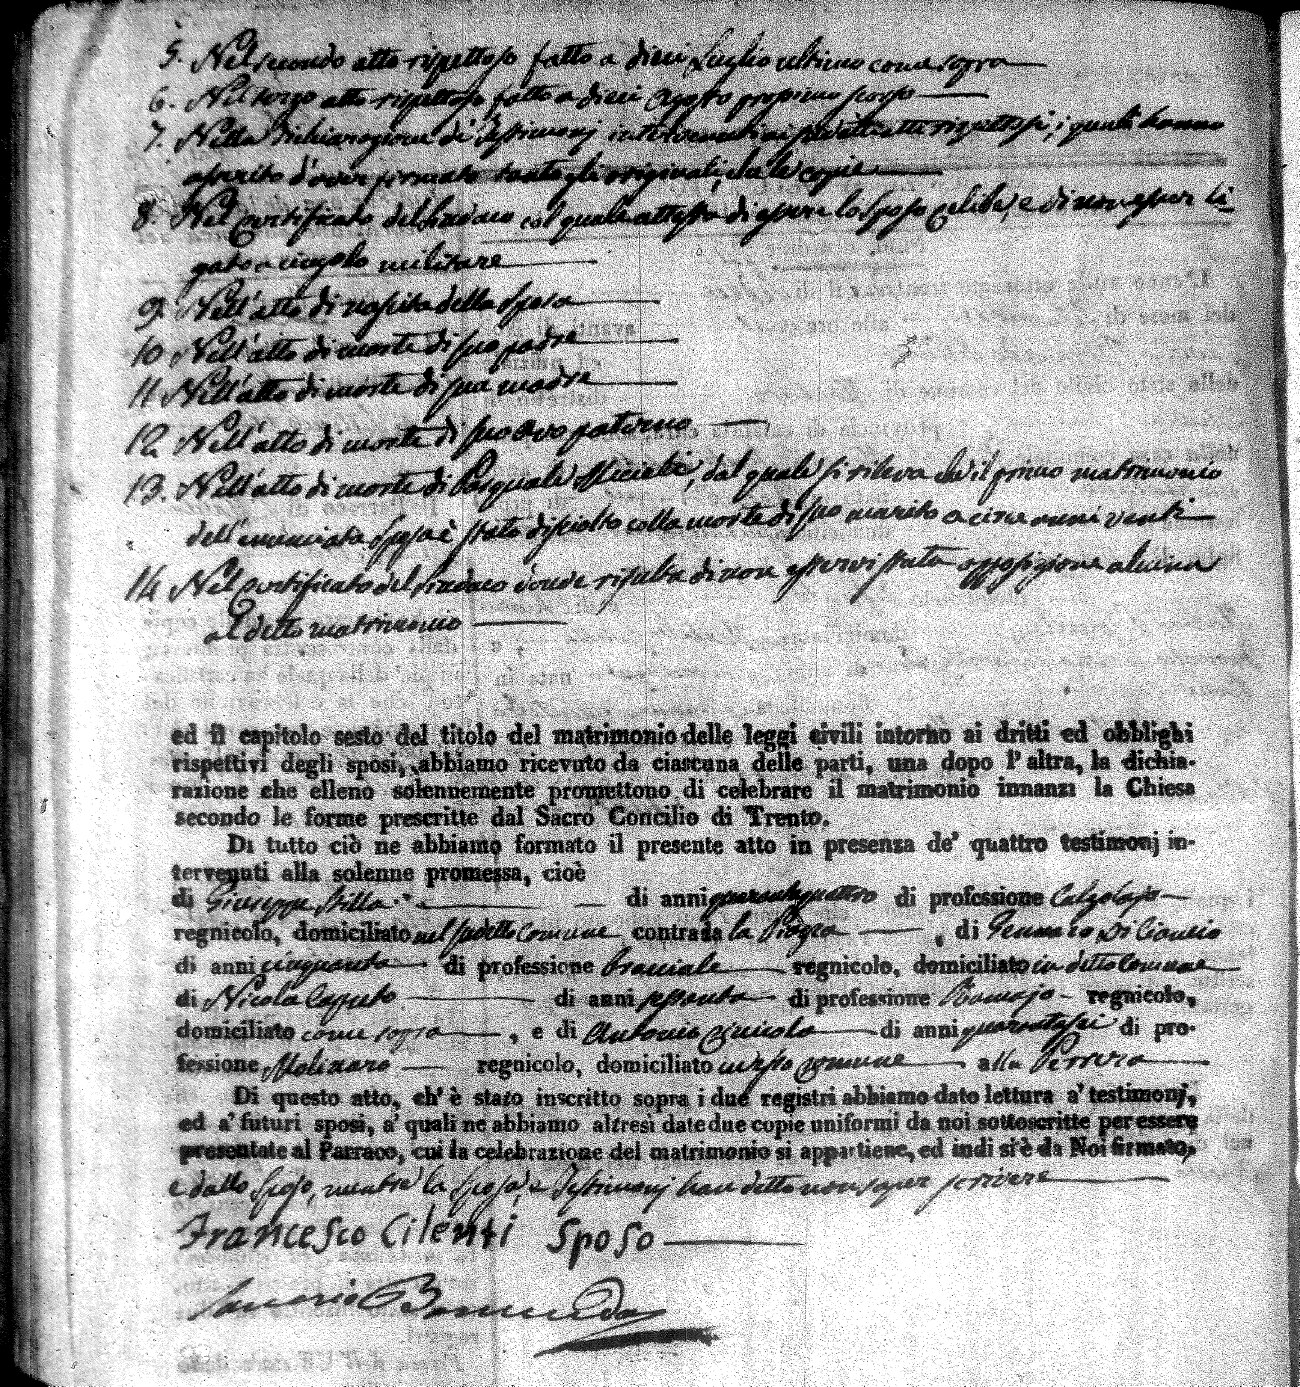 5. Nel secondo atto rispettoso fatto a dieci Luglio ultimo come sopra
6. Nel terzo atto rispettoso fatto a dieci Agosto prossimo scorso
7. Nella dichiarazione de' Testimonj intervenuti ai tre atti rispettosi, i quali hanno
asserito d'aver firmato tanto gli originali, che le copie
8. Nel Certificato del Sindaco col quale attesta di essere lo Sposo celibe, e di non esser li-
gato a cingolo militare
9. Nell'atto di nascita della Sposa
10 Nell'atto di morte di suo padre
11 Nell'atto di morte di sua madre
12 Nell'atto di morte di suo avo paterno
13. Nell'atto di morte di Pasquale, dal quale si rileva che il primo matrimonio
dell'enunciata Sposa è stato disciolto colla morte di suo marito a circa anni venti
14 Nel Certificato del Sindaco donde risulta di non esservi stata opposizione alcuna
al detto matrimonio
ed il capitolo sesto del titolo del matrimonio delle leggi civili intorno ai dritti ed obblighi
rispettivi degli sposi, abbiamo ricevuto da ciascuna delle parti, una dopo l'altra, la dichia-
razione che elleno solennemente promettono di celebrare il matrimonio innanzi la Chiesa
secondo le forme prescritte dal Sacro Concilio di Trento.
Di tutto ciò ne abbiamo formato il presente atto in presenza de' quattro testimonj in-
tervenuti alla solenne promessa, cioè
di Giuseppe Stilla di anni quarantaquattro di professione Calzolajo
regnicolo, domiciliato nel suddetto Comune contrada la Piazza, di Gennaro Di Cancio
di anni cinquanta di professione bracciale regnicolo, domiciliato in detto Comune
di Nicola Caputo di anni sessanta di professione Ramajo regnicolo,
domiciliato come sopra, e di Antonio di anni quarantasei di pro-
fessione Molinaro regnicolo, domiciliato in esso Comune alla
Di questo atto, ch'è stato inscritto sopra i due registri abbiamo dato lettura a' testimonj,
ed a' futuri sposi, a' quali ne abbiamo altresì date due copie uniformi da noi sottoscritte per essere
presentate al Parraco, cui la celebrazione del matrimonio si appartiene, ed indi si è da Noi firmato,
e dallo Sposo, mentre la Sposa, e Testimonj han detto non saper scrivere
Francesco Cilenti Sposo